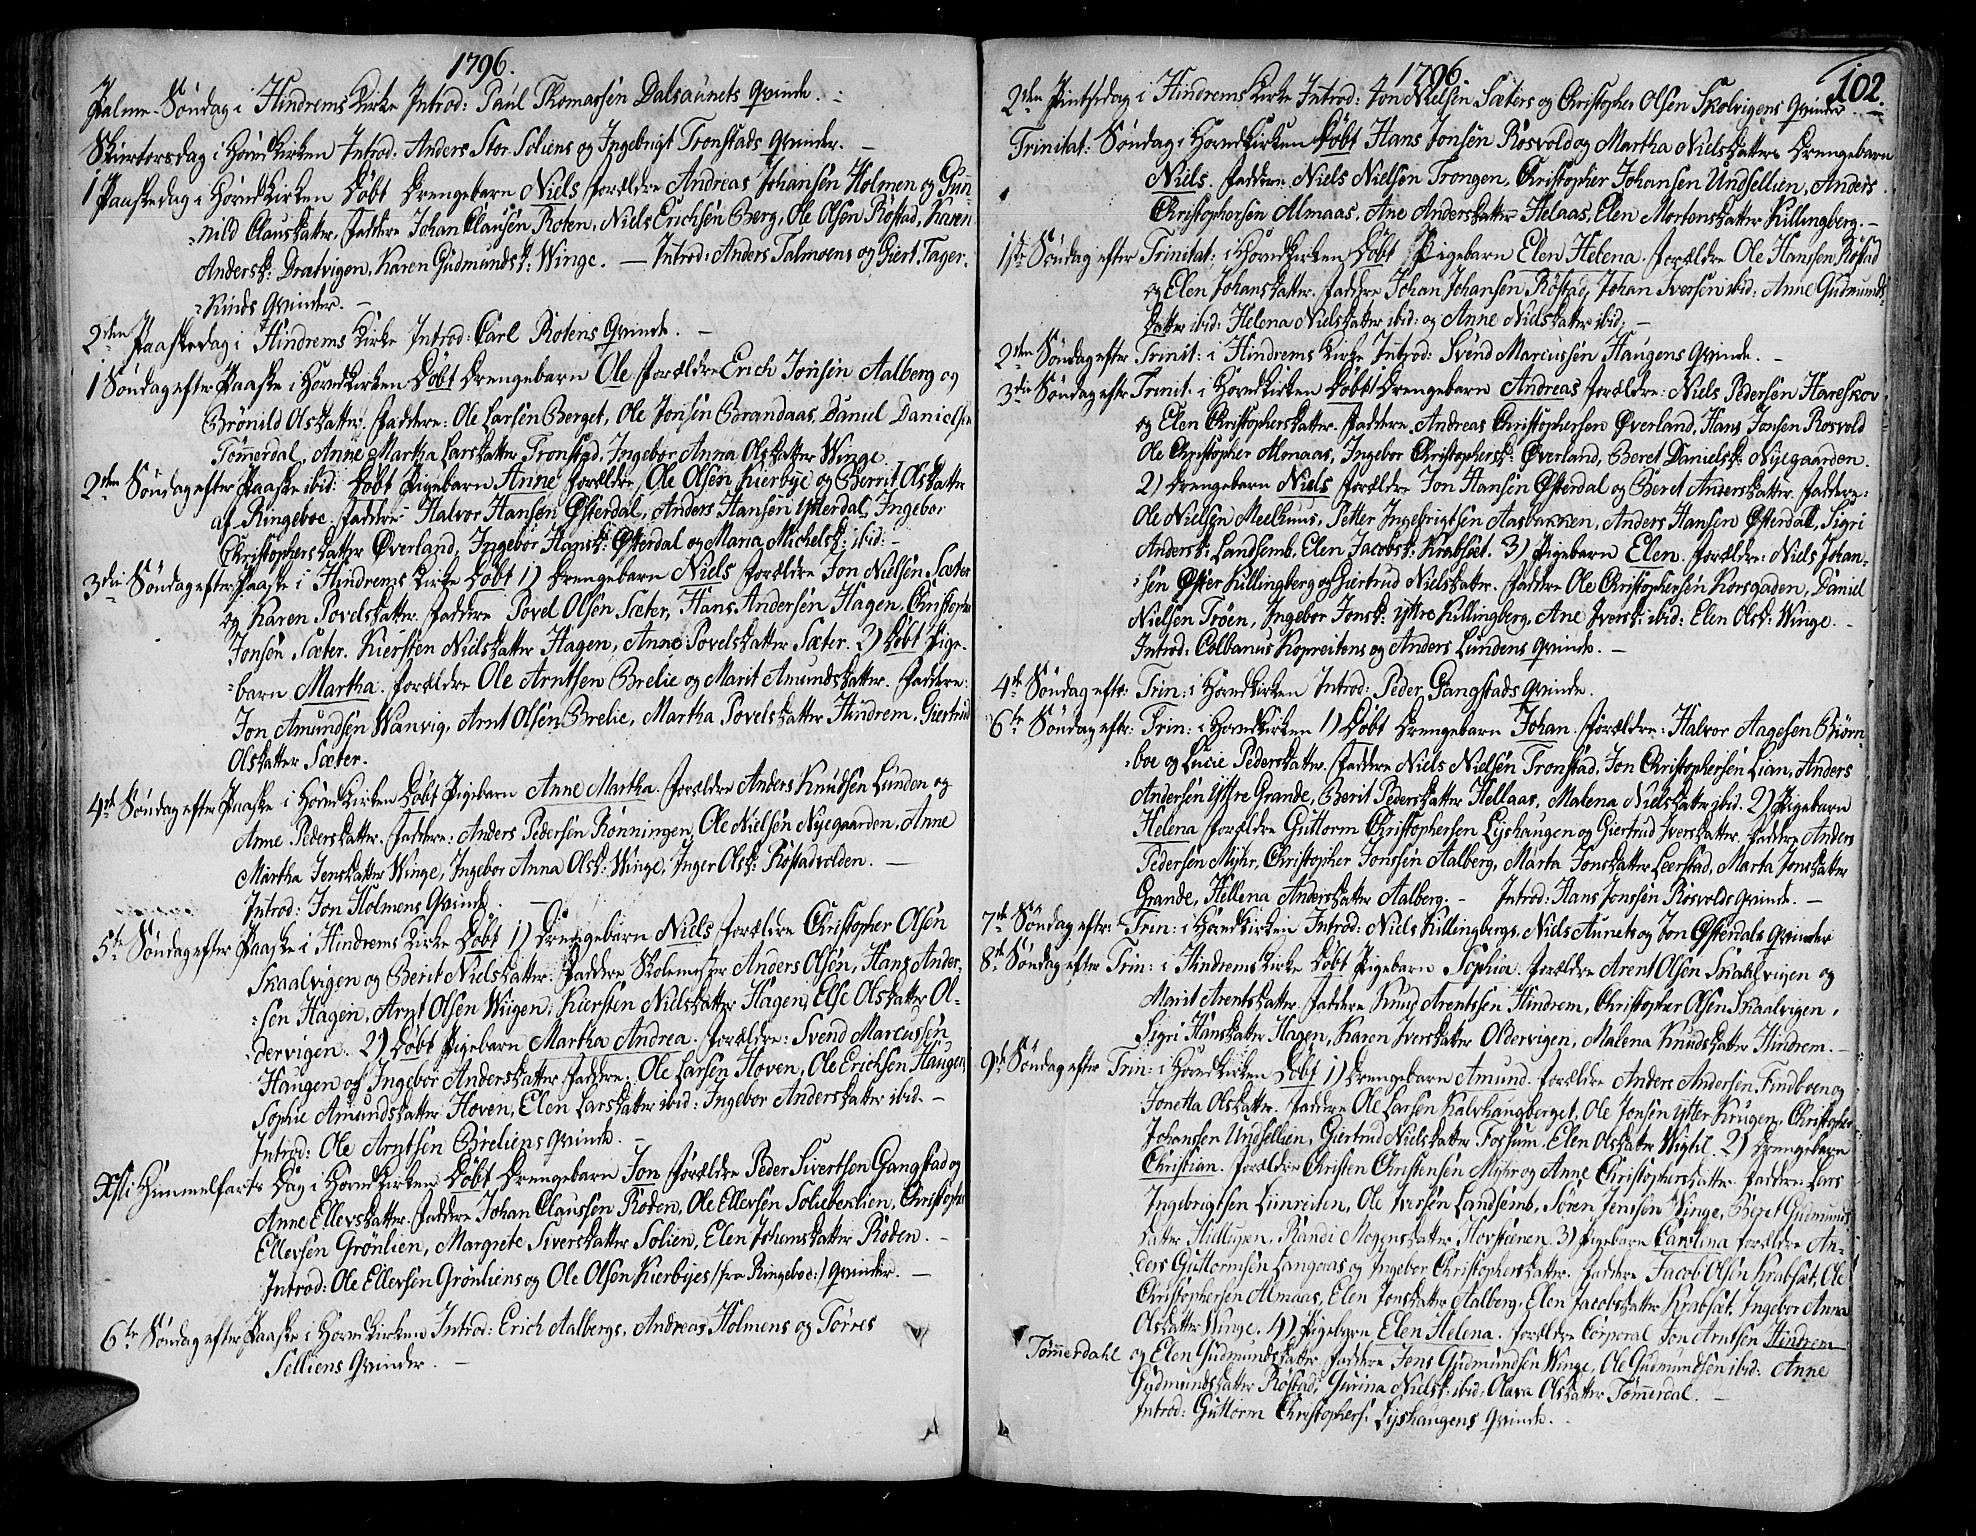 1796.
Palme-Søndag i Hindrems Kirke Introd: Paul Thomassen Dalsaunets Qvinde. -
Skiertorsdag i HovedKirken Introd: Anders Stor Soliens og Ingebrigt Tronstads Qvinder. -
1 Paaskedag i HovedKirken Døbt Drengebarn Niels, Forældre Andreas Johansen Holmen og Gun-
-nild Clausdatter, Faddere Johan Clausen Roten, Niels Erichsen Berg, Ole Olsen Røstad, Karen
Andersd: Drætvigen, Karen Gudmundsd: Winge. - Introd: Anders Talmoens og Giert Fager-
-Rinds Qvinder. -
2den Paaskedag i Hindrems Kirke Introd: Carl Rotens Qvinde. -
1 Søndag efter Paaske i HovedKirken Døbt Drengebarn Ole, Forældre Erich Jonsen Aalberg og
Brønild Olsdatter. Faddere: Ole Larsen Berget, Ole Jonsen Brandaas, Daniel Danielsen
Tømmerdal, Anne Martha Larsdatter Tronstad, Ingebor Anna Olsdatter Winge
2den Søndag efter Paaske ibid: Døbt Pigebarn Anne Forældre Ole Olsen Kierbye og Berrit Olsdatter
af Ringeboe. Faddere Halvor Hansen Østerdal, Anders Hansen ytterdal, Ingebor
Christophersdatter Øverland, Ingebor Hansd: Østerdal og Maria Michelsd: ibid: -
3die Søndag efter Paaske i Hindrems Kirke Døbt 1) Drengebarn Niels Forældre Jon Nielsen Sæter
og Karen Povelsdatter. Faddere Povel Olsen Sæter, Hans Andersen Hagen, Christopher
Jonsen Sæter. Kiersten Nielsdatter Hagen, Anne Povelsdatter Sæter. 2) Døbt Pige-
-barn Martha. Forældre Ole Arntsen Brelie og Marit Amundsdatter. Faddere:
Jon Amundsen Wanvig, Arnt Olsen Brelie, Martha Povelsdatter Hindrem, Giertrud
Olsdatter Sæter.
4de Søndag efter Paaske i HovedKirken Døbt Pigebarn Anne Martha. Forældre Anders Knudsen Lunden og
Anne Pedersdatter. Faddere: Anders Pedersen Rønningen, Ole Nielsen Nyegaarden, Anne
Martha Jensdatter Winge, Ingebor Anna Olsd: Winge, Inger Olsd: Røstadvolden. -
Introd: Jon Holmens Qvinde. -
5te Søndag efter Paaske i Hindrems Kirke Døbt 1) Drengebarn Niels Forældre Christopher Olsen
Skaalvigen og Berit Nielsdatter. Faddere Skolemester Anders Olsen, Hans Ander-
-sen Hagen, Arnt Olsen Wiigen, Kiersten Nielsdatter Hagen, Else Olsdatter Ol-
dervigen. 2) Døbt Pigebarn Martha Andrea. Forældre: Svend Marcussen
Haugen og Ingebor Andersdatter. Faddere: Ole Larsen Hoven, Ole Erichsen Haugen,
Sophie Amundsdatter Hoven, Elen Larsdatter ibid: Ingebor Andersdatter ibid. -
Introd: Ole Arntsen Breliens Qvinde. -
Xsti Himmelfarts Dag i HovedKirken Døbt Drengebarn Jon Forældre Peder Sivertsen Gangstad og
Anne Ellevsdatter. Faddere Johan Claussen Roden, Ole Ellevsen Soliebeklien, Christopher
Ellevsen Grønlien, Margrete Siversdatter Solien, Elen Johansdatter Roden. -
Introd: Ole Ellevsen Grønliens og Ole Olsen Kierbyes /:fra Ringeboe:/ Qvinder. -
6te Søndag efter Paaske i HovedKirken Introd: Erich Aalbergs, Andreas Holmens og Tørres
Selliens Qvinder. -
1796.
102.
2den Pintsedag i Hindrems Kirke Introd: Jon Nielsen Sæters og Christopher Olsen Skolvigens Qvinder
Trinitat: Søndag i HovedKirken Døbt Hans Jonsen Rosvold og Martha Nielsdatters Drengebarn
Niels. Faddere Niels Nielsen Trongen, Christopher Johansen Undsellien, Anders
Christophersen Almaas, Ane Andersdatter Helaas, Elen Mortensdatter Killingberg. -
1ste Søndag efter Trinitat: i HovedKirken Døbt Pigebarn Elen Helena. Forældre Ole Hansen Røstad
og Elen Johansdatter. Faddere Johan Johansen Røstad, Johan Iversen ibid: Anne Gudmunds-
datter ibid: Helena Nielsdatter ibid: og Anne Nielsdatter ibid: -
2den Søndag efter Trinit: i Hindrems Kirke Introd: Svend Marcussen Haugens Qvinde. -
3die Søndag efter Trinit: i HovedKirken Døbt Drengebarn Andreas Forældre: Niels Pedersen Hareskov
og Elen Christophersdatter. Faddere Andreas Christophersen Øverland, Hans Jonsen Rosvold
Ole Christopher Almaas, Ingebor Christophersd: Øverland, Beret Danielsd: Nyegaarden.
2) Drengebarn Niels Forældre Jon Hansen Østerdal og Beret Andersdatter. Faddere:
Ole Nielsen Meelhuus, Petter Ingebrigtsen Aasbakken, Anders Hansen Østerdall, Sigri
Andersd: Landsemb, Elen Jacobsd: Krabsæt. 3) Pigebarn Elen. Forældre: Niels Johan-
-sen Øster Killingberg og Giertrud Nielsdatter. Faddere Ole Christophersen Korsgaden, Daniel
Nielsen Trøen, Ingebor Jonsd: yttre Killingberg, Ane Iversd: ibid: Elen Olsd: Winge. -
Introd: Colbanus Kopreitens og Anders Lundens Qvinde. -
4de Søndag eftr: Trin: i HovedKirken Introd: Peder Gangstads Qvinde.
6te Søndag eftr: Trin: i HovedKirken 1) Døbt Drengebarn Johan. Forældre: Halvor Aagesen Biørn-
-boe og Lucie Pedersdatter. Faddere Niels Nielsen Tronstad, Jon Christophersen Lian, Anders
Andersen Yttre Grande, Berit Pedersdatter Hellaas, Malena Nielsdatter ibid. 2) Pigebarn
Helena Forældre Guttorm Christophersen Lyshaugen og Giertrud Iversdatter. Faddere Anders
Pedersen Myhr, Christopher Jonssen Aalberg, Marta Jonsdatter Leerstad, Marta Jonsdatter
Grande, Hellena Andersdatter Aalberg. - Introd: Hans Jonssen Rosvolds Qvinde. -
7de Søndag efter Trin: i HovedKirken Introd: Niels Killingbergs, Niels Aunets og Jon Østerdals Qvinder
8de Søndag efter Trin: i Hindrems Kirke Døbt Pigebarn Sophia. Forældre Arent Olsen Skaalvigen og
Marit Arentsdatter. Faddere Knud Arentsen Hindrem, Christopher Olsen Skaalvigen,
Sigri Hansdatter Hagen, Karen Iversdatter Oldervigen, Malena Knudsdatter Hindrem. -
9de Søndag efter Trin: i HovedKirken Døbt 1) Drengebarn Amund. Forældre Anders Andersen Findboen og
Jonetta Olsdatter. Faddere Ole Larsen Kalvhaugberget, Ole Jonsen ytter Krugen, Christopher
Johansen Undsellien, Giertrud Nielsdatter Fossum. Elen Olsdatter Wigtil. 2) Drengebarn
Christian. Forældre Christen Christensen Myhr og Anne Christophersdatter. Faddere Lars
Ingebrigtsen Limreiten, Ole Iversen Landsemb, Søren Jenssen Winge, Beret Gudmunds
datter Hellupen, Randi Mogensdatter Hovsteenen. 3) Pigebarn Carolina Forældre An-
ders Guttormsen Langaas og Ingebor Christophersdatter. Faddere Jacob Olsen Krabsæt, Ole
Christophersen Almaas, Elen Jonsdatter Aalberg, Elen Jacobsdatter Krabsæt, Ingebor Anna
Olsdatter Winge. 4) Pigebarn Elen Helena. Forældre Corporal Jon Arntsen Hindrem
Tømmerdahl og Elen Gudmundsdatter. Faddere Jens Gudmundsen Winge, Ole Gudmundsen ibid: Anne
Gudmundsdatter Røstad, Gurina Nielsd: ibid, Olava Olsdatter Tømmerdal. -
Introd: Guttorm Christophers: Lyshaugens Qvinde. -